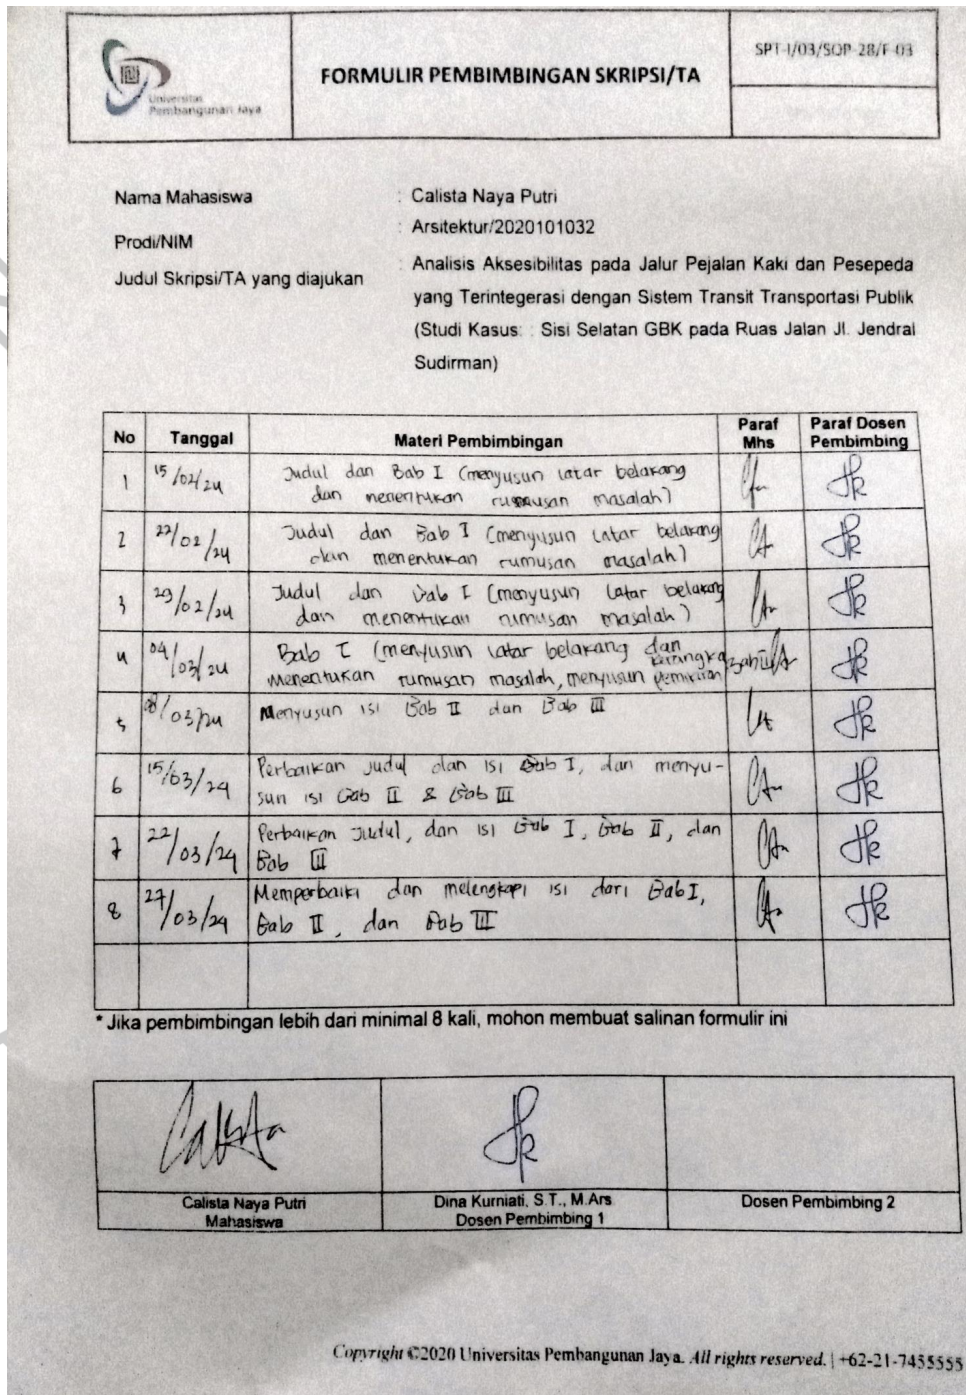 Universitas
Pembangunan Jaya
FORMULIR PEMBIMBINGAN SKRIPSI/TA
SPT-I/03/SOP-28/F-03
Nama Mahasiswa : Calista Naya Putri
Prodi/NIM : Arsitektur/2020101032
Judul Skripsi/TA yang diajukan : Analisis Aksesibilitas pada Jalur Pejalan Kaki dan Pesepeda
yang Terintegerasi dengan Sistem Transit Transportasi Publik
(Studi Kasus : Sisi Selatan GBK pada Ruas Jalan Jl. Jendral
Sudirman)
No Tanggal Materi Pembimbingan Paraf Mhs Paraf Dosen Pembimbing
1 15/02/24 Judul dan Bab I (menyusun latar belakang
dan menentukan rumusan masalah)
2 22/02/24 Judul dan Bab I (menyusun latar belakang
dan menentukan rumusan masalah)
3 29/02/24 Judul dan Bab I (menyusun latar belakang
dan menentukan rumusan masalah)
4 04/03/24 Bab I (menyusun latar belakang dan
menentukan rumusan masalah, menyusun kerangka pemikiran Bab II
5 08/03/24 Menyusun isi Bab II dan Bab III
6 15/03/24 Perbaikan judul dan isi Bab I, dan menyu-
sun isi Bab II & Bab III
7 22/03/24 Perbaikan Judul, dan isi Bab I, Bab II, dan
Bab III
8 27/03/24 Memperbaiki dan melengkapi isi dari Bab I,
Bab II, dan Bab III
* Jika pembimbingan lebih dari minimal 8 kali, mohon membuat salinan formulir ini
Calista
Calista Naya Putri
Mahasiswa
Dina Kurniati, S.T., M.Ars
Dosen Pembimbing 1
Dosen Pembimbing 2
Copyright ©2020 Universitas Pembangunan Jaya. All rights reserved. | +62-21-7455555